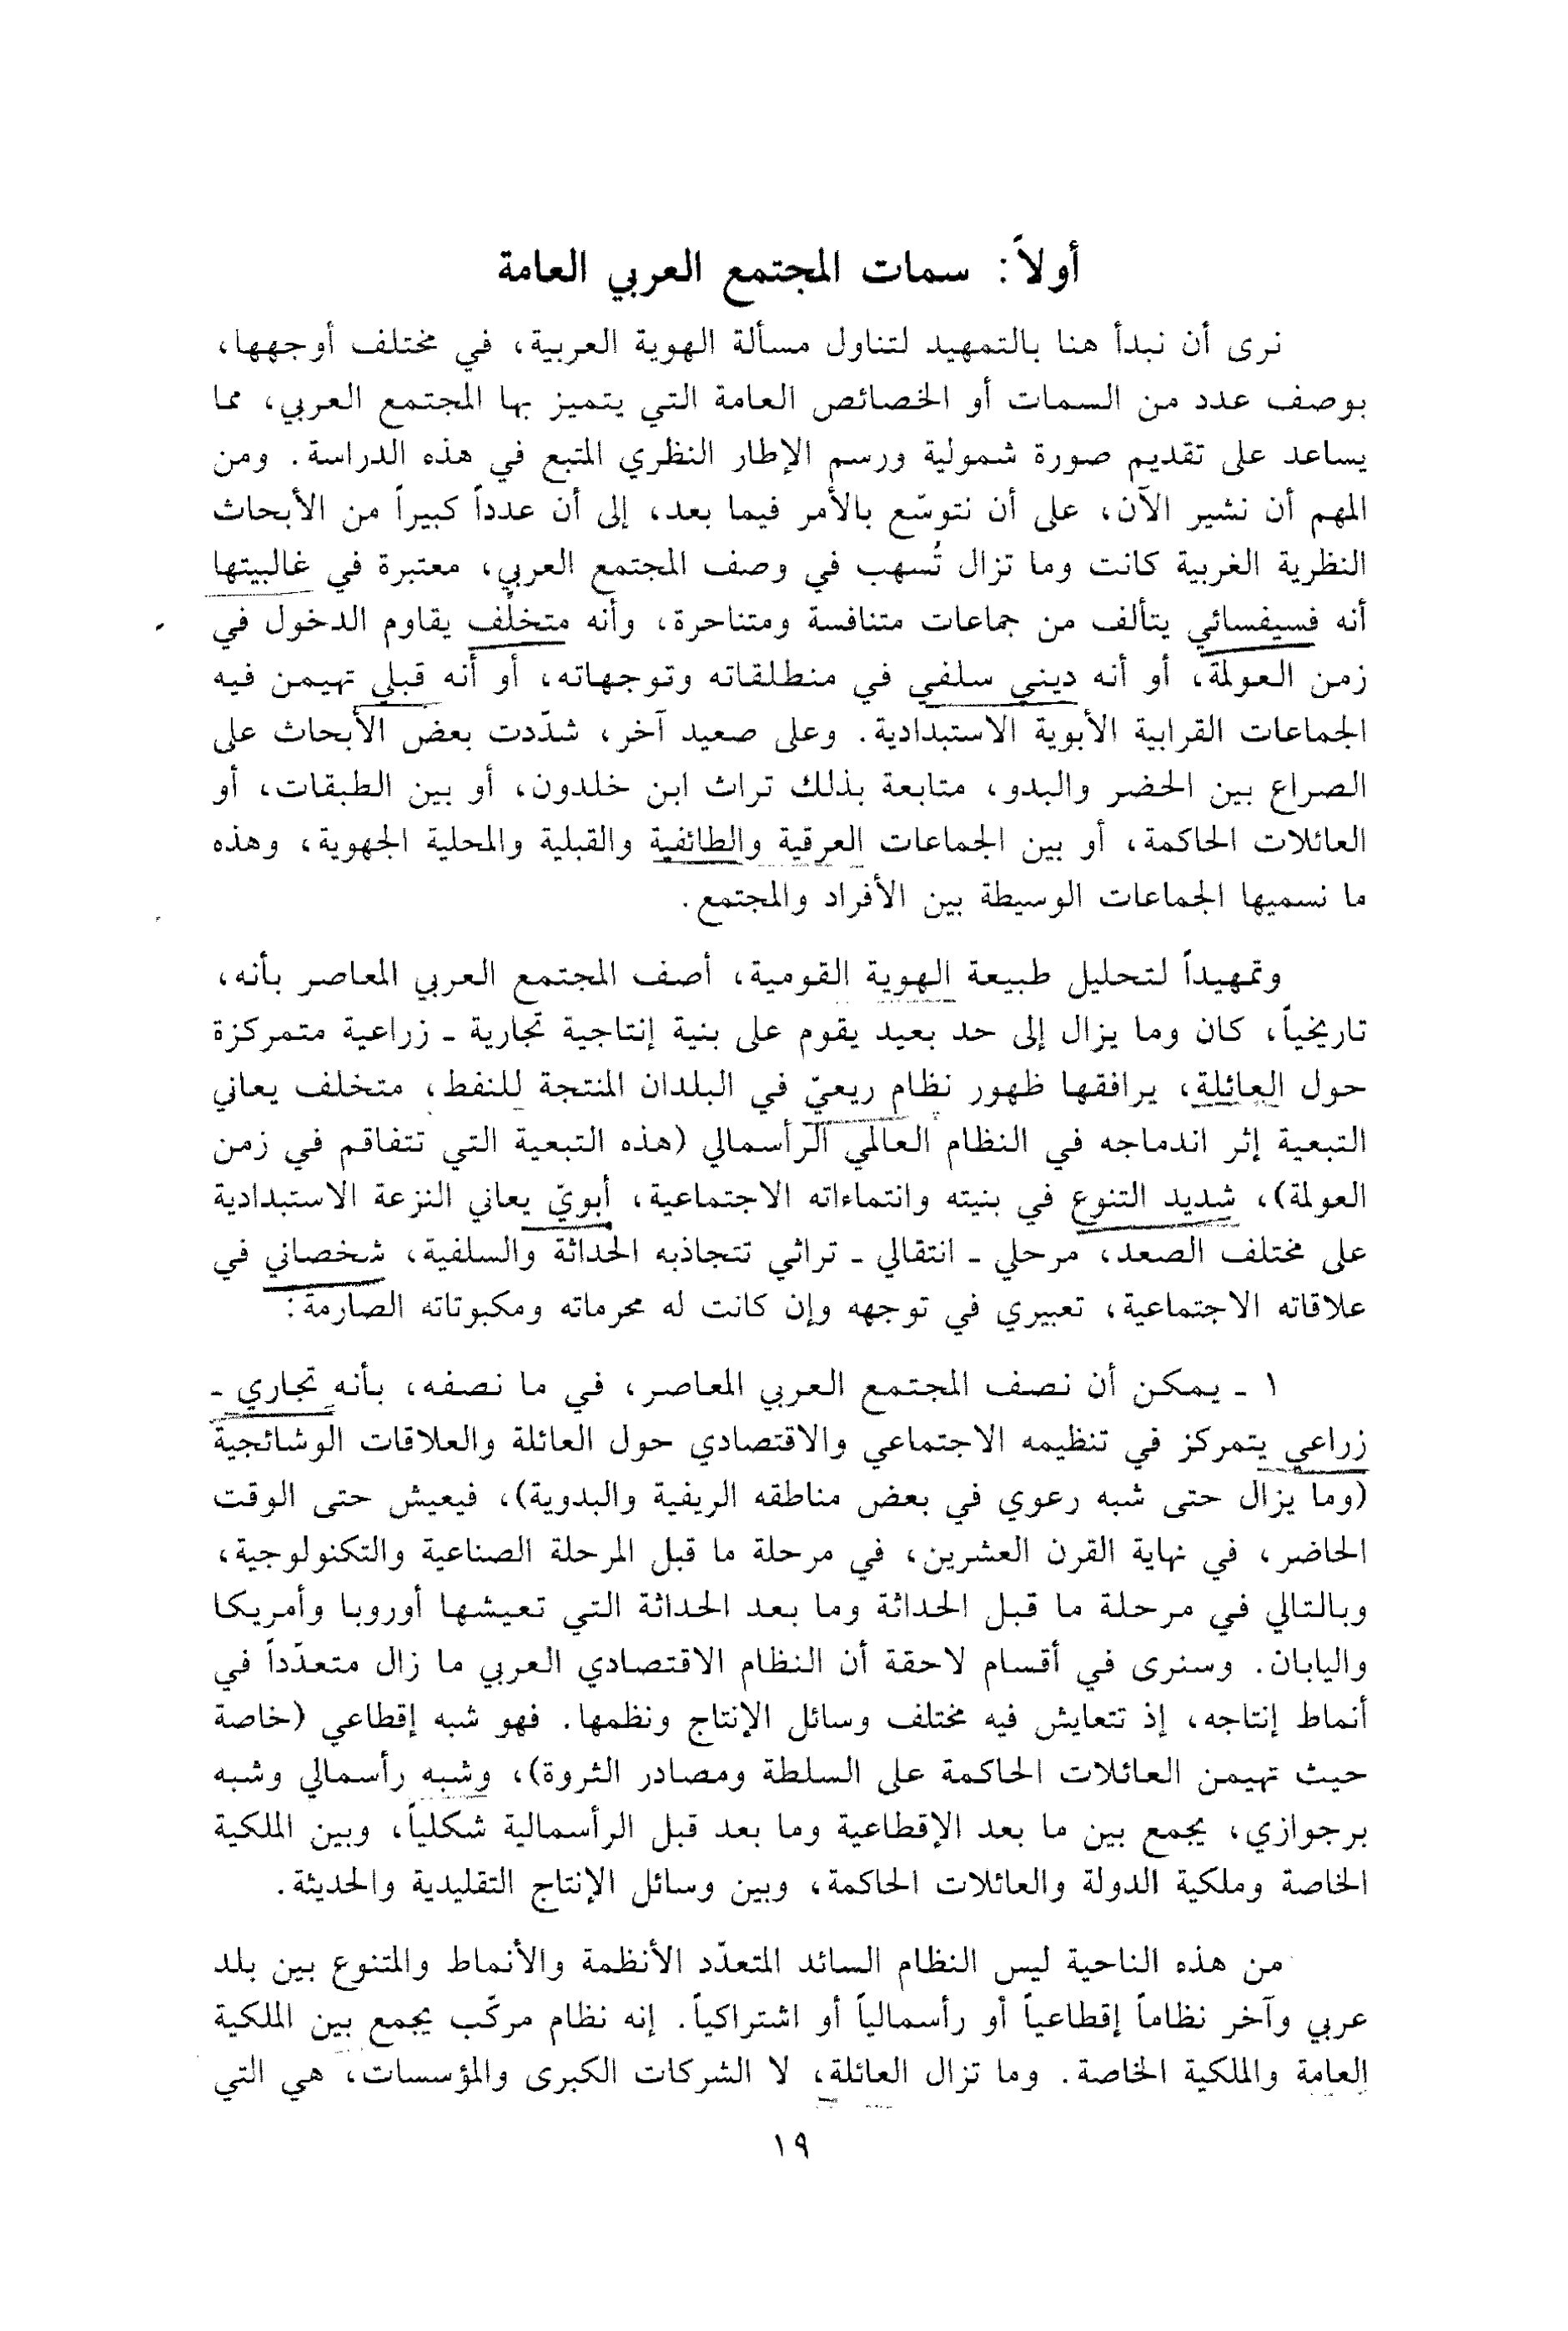 أولاً: سمات المجتمع العربي العامة
نرى أن نبدأ هنا بالتمهيد لتناول مسألة الهوية العربية، في مختلف أوجهها،
بوصف عدد من السمات أو الخصائص العامة التي يتميز بها المجتمع العربي، مما
يساعد على تقديم صورة شمولية ورسم الإطار النظري المتبع في هذه الدراسة. ومن
المهم أن نشير الآن، على أن نتوسّع بالأمر فيما بعد، إلى أن عدداً كبيراً من الأبحاث
النظرية الغربية كانت وما تزال تُسهب في وصف المجتمع العربي، معتبرة في غالبيتها
أنه فسيفسائي يتألف من جماعات متنافسة ومتناحرة، وأنه متخلّف يقاوم الدخول في
زمن العولمة، أو أنه ديني سلفي في منطلقاته وتوجهاته، أو أنه قبلي تهيمن فيه
الجماعات القرابية الأبوية الاستبدادية. وعلى صعيد آخر، شدّدت بعض الأبحاث على
الصراع بين الحضر والبدو، متابعة بذلك تراث ابن خلدون، أو بين الطبقات، أو
العائلات الحاكمة، أو بين الجماعات العرقية والطائفية والقبلية والمحلية الجهوية، وهذه
ما نسميها الجماعات الوسيطة بين الأفراد والمجتمع.
وتمهيداً لتحليل طبيعة الهوية القومية، أصف المجتمع العربي المعاصر بأنه،
تاريخياً، كان وما يزال إلى حد بعيد يقوم على بنية إنتاجية تجارية ـ زراعية متمركزة
حول العائلة، يرافقها ظهور نظام ريعيّ في البلدان المنتجة للنفط، متخلف يعاني
التبعية إثر اندماجه في النظام العالمي الرأسمالي (هذه التبعية التي تتفاقم في زمن
العولمة)، شديد التنوع في بنيته وانتماءاته الاجتماعية، أبويّ يعاني النزعة الاستبدادية
على مختلف الصعد، مرحلي ـ انتقالي ـ تراثي تتجاذبه الحداثة والسلفية، شخصاني في
علاقاته الاجتماعية، تعبيري في توجهه وإن كانت له محرماته ومكبوتاته الصارمة:
١ ـ يمكن أن نصف المجتمع العربي المعاصر، في ما نصفه، بأنه تجاري ـ
زراعي يتمركز في تنظيمه الاجتماعي والاقتصادي حول العائلة والعلاقات الوشائجية
(وما يزال حتى شبه رعوي في بعض مناطقه الريفية والبدوية)، فيعيش حتى الوقت
الحاضر، في نهاية القرن العشرين، في مرحلة ما قبل المرحلة الصناعية والتكنولوجية،
وبالتالي في مرحلة ما قبل الحداثة وما بعد الحداثة التي تعيشها أوروبا وأمريكا
واليابان. وسنرى في أقسام لاحقة أن النظام الاقتصادي العربي ما زال متعدّداً في
أنماط إنتاجه، إذ تتعايش فيه مختلف وسائل الإنتاج ونظمها. فهو شبه إقطاعي (خاصة
حيث تهيمن العائلات الحاكمة على السلطة ومصادر الثروة)، وشبه رأسمالي وشبه
برجوازي، يجمع بين ما بعد الإقطاعية وما بعد قبل الرأسمالية شكلياً، وبين الملكية
الخاصة وملكية الدولة والعائلات الحاكمة، وبين وسائل الإنتاج التقليدية والحديثة.
من هذه الناحية ليس النظام السائد المتعدّد الأنظمة والأنماط والمتنوع بين بلد
عربي وآخر نظاماً إقطاعياً أو رأسمالياً أو اشتراكياً. إنه نظام مركّب يجمع بين الملكية
العامة والملكية الخاصة. وما تزال العائلة، لا الشركات الكبرى والمؤسسات، هي التي
١٩